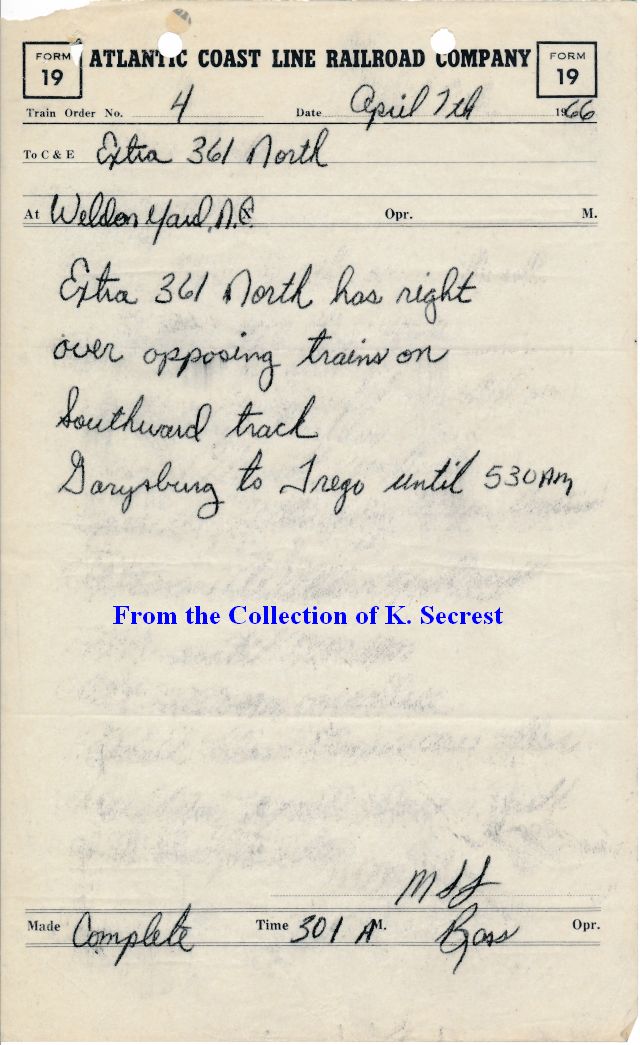 FORM 19 ATLANTIC COAST LINE RAILROAD COMPANY FORM 19
Train Order No. 4 Date April 7th 1966
To C & E Extra 361 North
At Weldon Yard, N.C. X Opr. M.
Extra 361 North has right
over opposing trains on
Southward track
Garysburg to Trego until 530 AM
From the Collection of K. Secrest
Made Complete Time 301 A M. Ross Opr.